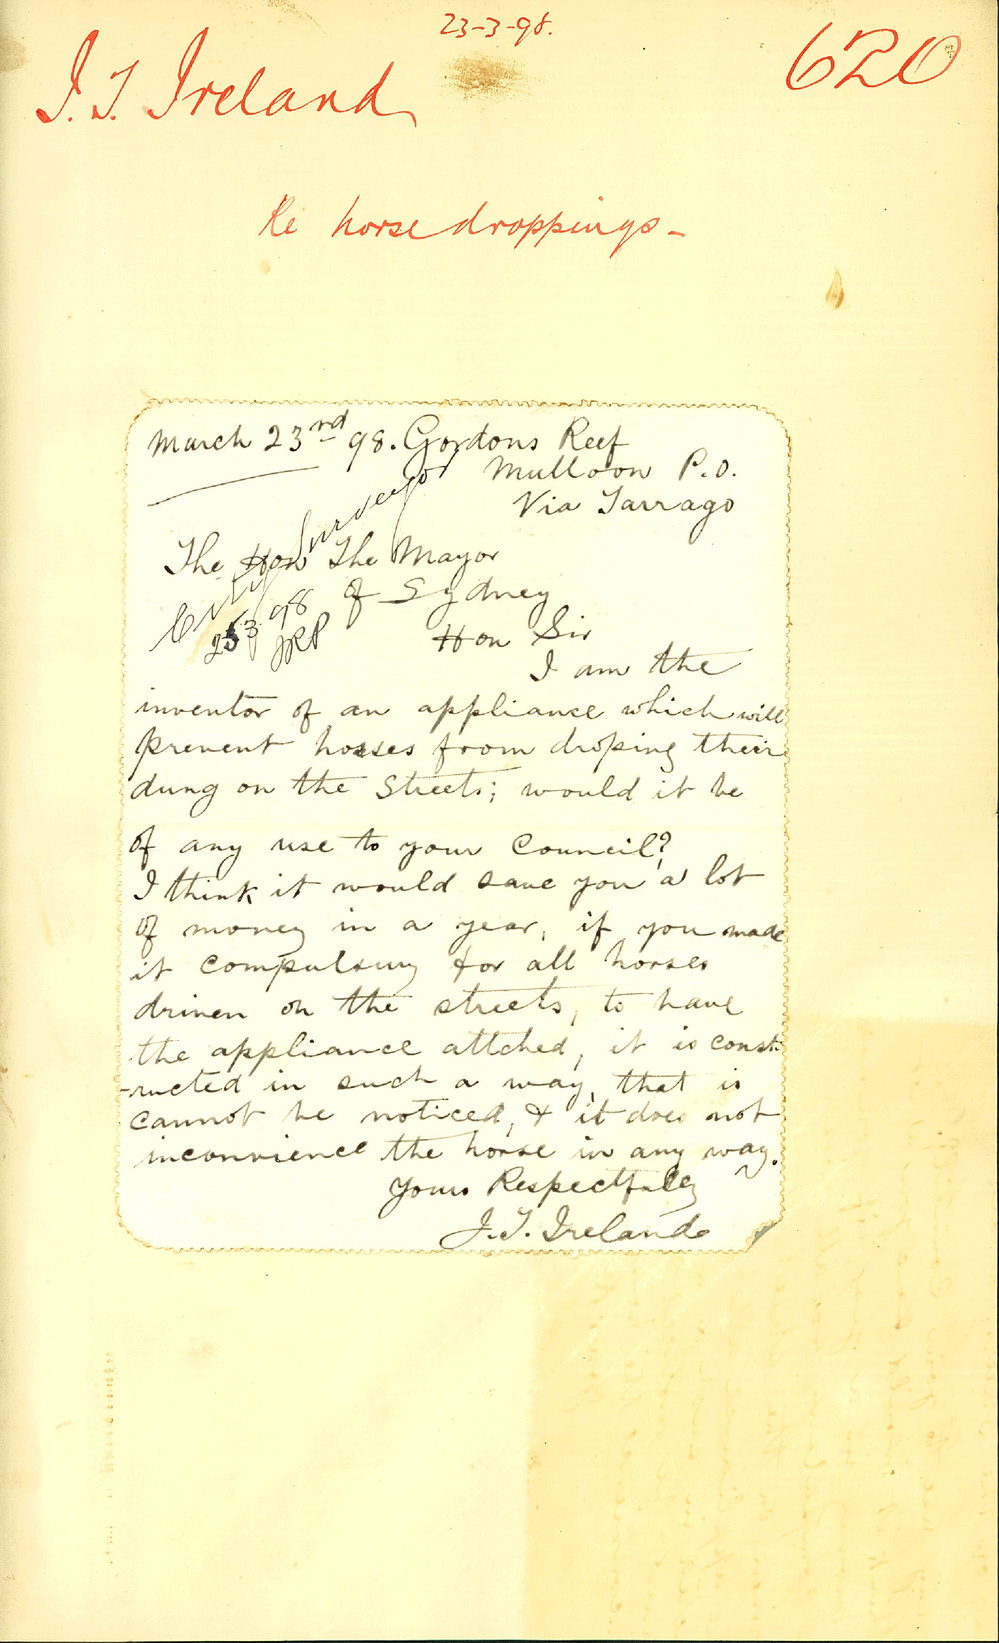 23-3-98.
620
J. T. Ireland
Re horse droppings -
March 23rd 98. Gordons Reef
Mulloon P.O.
Via Tarrago
City Surveyor
The Hon The Mayor
of Sydney
25/3/98
JRP
Hon Sir
I am the
inventor of an appliance which will
prevent horses from droping their
dung on the Streets; would it be
of any use to your Council?
I think it would save you a lot
of money in a year, if you made
it compulsury for all horses
driven on the streets, to have
the appliance attched, it is const-
-ructed in such a way, that is
cannot be noticed, & it does not
inconvience the horse in any way.
Yours Respectfuly
J. T. Ireland